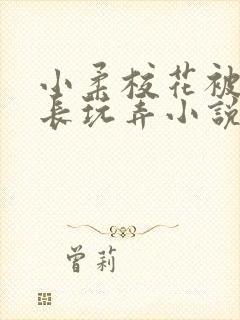 小柔校花被
长玩弄小説
曾莉